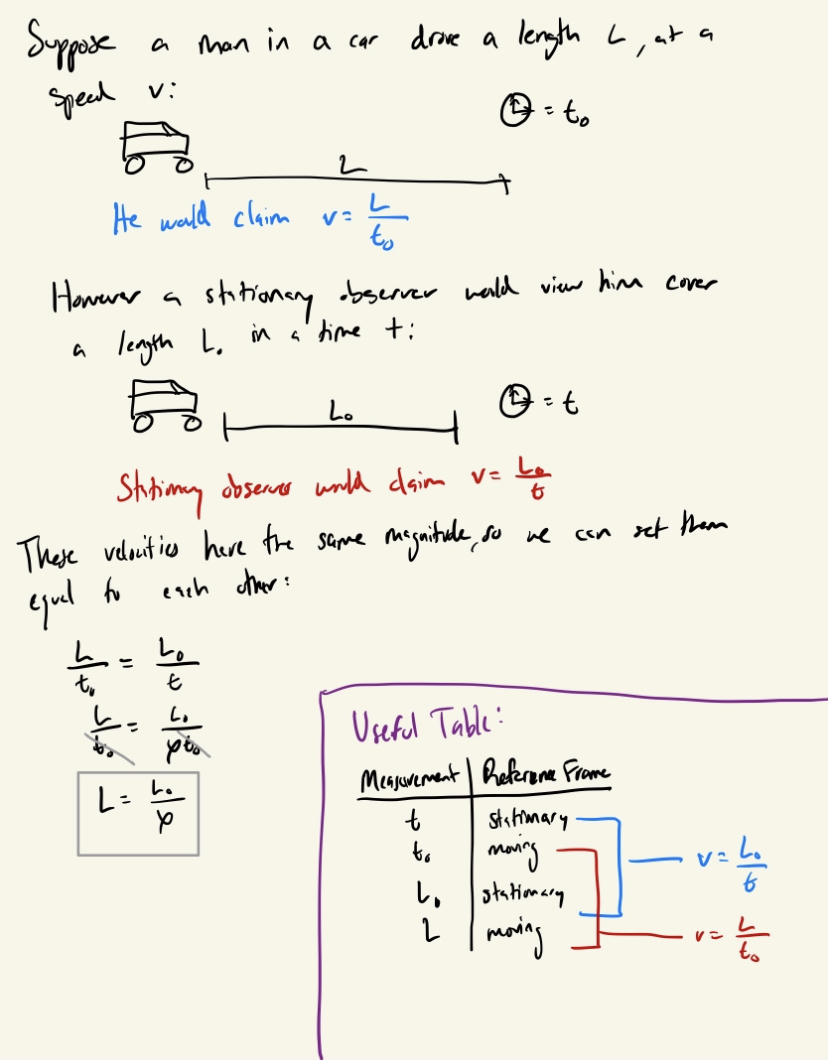 Suppose a man in a car drove a length L, at a
speed v:
= t₀
L
He would claim v = L/t₀
However a stationary observer would view him cover
a length L₀ in a time t:
L₀
= t
Stationary observer would claim v = L₀/t
These velocities have the same magnitude, so we can set them
equal to each other:
L/t₀ = L₀/t
L/t₀ = L₀/γt₀
L = L₀/γ
Useful Table:
Measurement | Reference Frame
t stationary
t₀ moving
L₀ stationary
L moving
v = L₀/t
v = L/t₀